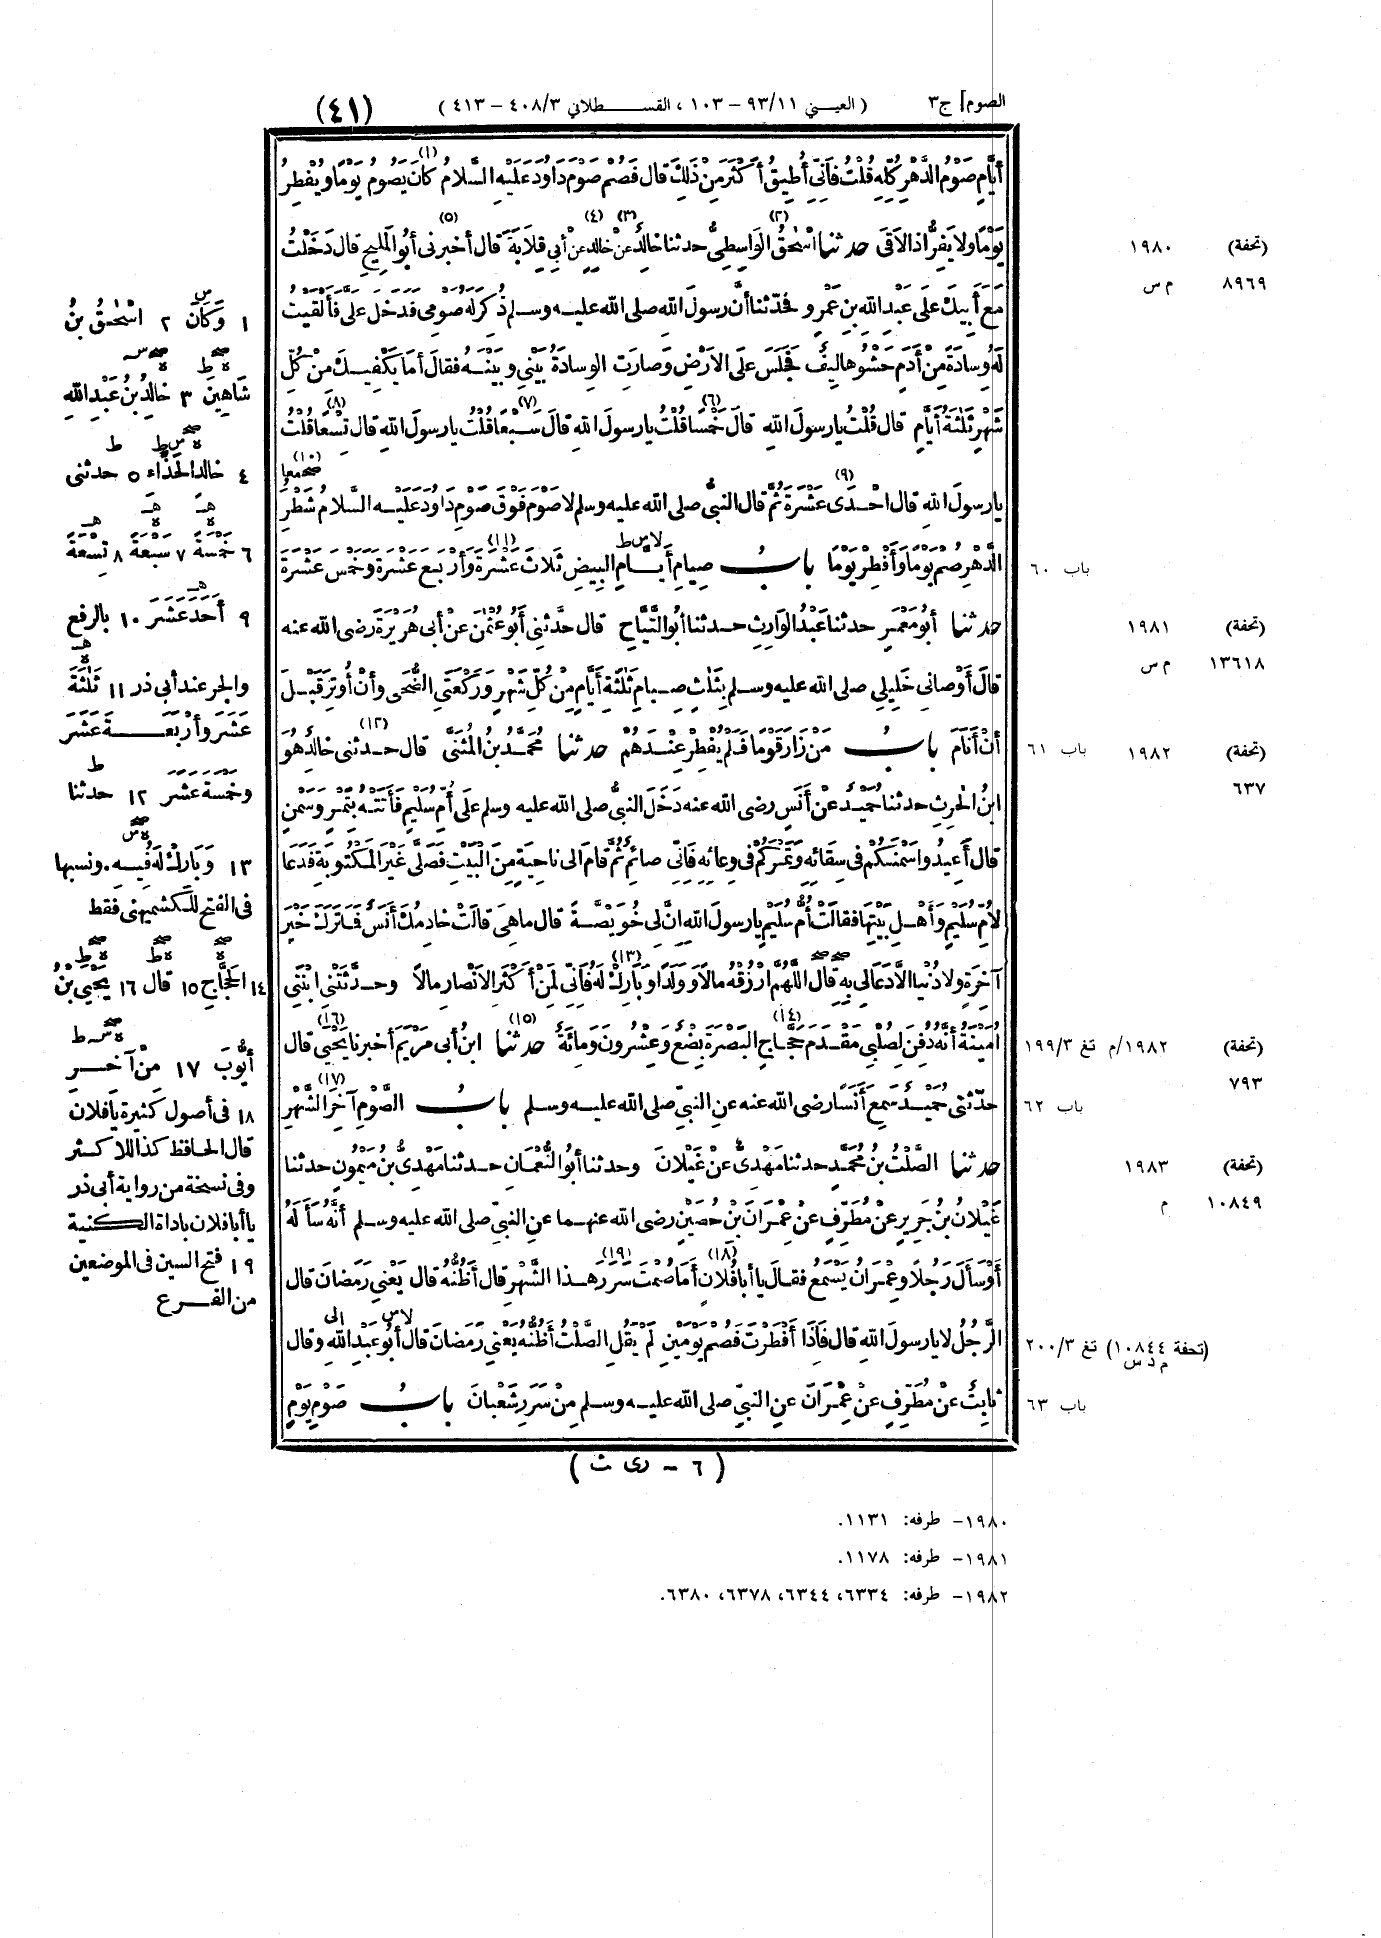 الصوم] ج٣ ( العيني ٩٣/١١ - ١٠٣ ، القسطلاني ٤٠٨/٣ - ٤١٣ ) (٤١)
أَيَّامٍ صَوْمُ الدَّهْرِ كُلِّهِ قُلْتُ فَإِنِّى أُطِيقُ أَكْثَرَ مِنْ ذٰلِكَ قال فَصُمْ صَوْمَ دَاوُدَ عَلَيْهِ السَّلَامُ (١) كَانَ يَصُومُ يَوْمًا وَيُفْطِرُ
يَوْمًا ولا يَفِرُّ اذا لاقَى حدثنا (٢) اسْحٰقُ الوَاسِطِىُّ حدثنا خالِدُ (٣) عنْ خالِدٍ (٤) عنْ أبِي قِلَابَةَ قال (٥) أخبرنى أبُو المَلِيحِ قال دَخَلْتُ
مَعَ أَبِيكَ علَى عَبْدِ الله بنِ عَمْرٍو فَحَدَّثنا أنَّ رسولَ الله صلى الله عليه وسلم ذُكِرَ لَهُ صَوْمِى فَدَخَلَ عَلَىَّ فَأَلْقَيْتُ
لَهُ وِسَادَةً مِنْ أَدَمٍ حَشْوُها لِيفٌ فَجَلَسَ علَى الارْضِ وَصارَتِ الوِسادَةُ بَيْنِي وبَيْنَهُ فقال أما يَكْفِيكَ مِنْ كُلِّ
شَهْرٍ ثَلٰثَةُ أَيَّامٍ قال قُلْتُ يا رسولَ اللهِ قال خَمْسًا (٦) قُلْتُ يا رسولَ اللهِ قال سَبْعًا (٧) قُلْتُ يا رسولَ اللهِ قال تِسْعًا (٨) قُلْتُ
يا رسولَ اللهِ قال احْدَى عَشْرَةَ (٩) ثُمَّ قال النبىُّ صلى الله عليه وسلم لا صَوْمَ فَوْقَ صَوْمِ دَاوُدَ عَلَيْهِ السَّلامُ شَطْرَ (١٠)
الدَّهْرِ صُمْ يَوْمًا وَأَفْطِرْ يَوْمًا بابُ صِيامِ أَيَّامِ البِيضِ ثَلاثَ عَشْرَةَ (١١) وأَرْبَعَ عَشْرَةَ وخَمْسَ عَشْرَةَ
حدثنا أبُو مَعْمَرٍ حدثنا عَبْدُ الوَارِثِ حدثنا أبُو التَّيَّاحِ قال حدَّثنِى أَبُو عُثْمٰنَ عنْ أبى هُرَيْرَةَ رضى الله عنه
قال أَوْصانِى خَلِيلِي صلى الله عليه وسلم بِثَلٰثٍ صِيامِ ثَلٰثَةِ أَيَّامٍ مِنْ كُلِّ شَهْرٍ وَرَكْعَتَىِ الضُّحَى وأَنْ أُوتِرَ قَبْلَ
أَنْ أَنَامَ بابُ مَنْ زَارَ قَوْمًا فَلَمْ يُفْطِرْ عِنْدَهُمْ حدثنا مُحَمَّدُ بنُ المُثَنَّى قال حدثنى (١٢) خالِدُ هُوَ
ابنُ الحٰرِثِ حدثنا حُمَيْدُ عنْ أَنَسٍ رضى الله عنه دَخَلَ النبىُّ صلى الله عليه وسلم علَى أُمِّ سُلَيْمٍ فَأَتَتْهُ بِتَمْرٍ وَسَمْنٍ
قال أَعِيدُوا سَمْنَكُمْ فى سِقائِهِ وَتَمْرَكُمْ فى وِعائِهِ فَإِنِّى صائِمٌ ثُمَّ قامَ الى ناحِيَةٍ مِنَ البَيْتِ فَصَلَّى غَيْرَ المَكْتُوبَةِ فَدَعا
لِأُمِّ سُلَيْمٍ وَأَهْلِ بَيْتِها فقالتْ أُمُّ سُلَيْمٍ يا رسولَ الله انَّ لِى خُوَيْصَّةً قال ما هِىَ قالتْ خادِمُكَ أَنَسٌ فَمَا تَرَكَ خَيْرَ
آخِرَةٍ ولا دُنْيا الَّا دَعا لِى بِهِ قال اللّٰهُمَّ ارْزُقْهُ مالًا وَوَلَدًا وبارِكْ لَهُ (١٣) فَإِنِّى لَمِنْ أَكْثَرِ الانْصارِ مالًا وحدَّثَتْنِى ابْنَتِى
أُمَيْنَةُ أَنَّهُ دُفِنَ لِصُلْبِي مَقْدَمَ حَجَّاجٍ (١٤) البَصْرَةَ بِضْعٌ وَعِشْرُونَ وَمِائَةٌ حدثنا (١٥) ابنُ أبى مَرْيَمَ أخبرنا يَحْيَى (١٦) قال
حدَّثنى حُمَيْدٌ سَمِعَ أَنَسًا رضى الله عنه عنِ النبيِّ صلى الله عليه وسلم بابُ الصَّوْمِ آخِرَ (١٧) الشَّهْرِ
حدثنا الصَّلْتُ بنُ مُحَمَّدٍ حدثنا مَهْدِىٌّ عنْ غَيْلَانَ وحدثنا أبُو النُّعْمانِ حدثنا مَهْدِىُّ بنُ مَيْمُونٍ حدثنا
غَيْلانُ بنُ جَرِيرٍ عنْ مُطَرِّفٍ عنْ عِمْرَانَ بنِ حُصَيْنٍ رضى الله عنهما عنِ النبيِّ صلى الله عليه وسلم أَنَّهُ سَأَلَهُ
أَوْ سَأَلَ رَجُلًا وعِمْرَانُ يَسْمَعُ فقال يا أَبا فُلانٍ (١٨) أَما صُمْتَ سَرَرَ (١٩) هذا الشَّهْرِ قال أَظُنُّهُ قال يَعْنِي رَمَضانَ قال
الرَّجُلُ لا يا رسولَ الله قال فَاذا أَفْطَرْتَ فَصُمْ يَوْمَيْنِ لَمْ يَقُلِ الصَّلْتُ أَظُنُّهُ يَعْنِي رَمَضانَ قال أبُو عَبْدِ اللهِ وقال
ثابِتُ عنْ مُطَرِّفٍ عنْ عِمْرَانَ عنِ النبيِّ صلى الله عليه وسلم مِنْ سَرَرِ شَعْبانَ بابُ صَوْمِ يَوْمِ
( ٦ - رى ث )
١٩٨٠ (تحفة)
م س ٨٩٦٩
باب ٦٠
١٩٨١ (تحفة)
م س ١٣٦١٨
باب ٦١ ١٩٨٢ (تحفة)
٦٣٧
١٩٨٢/م تغ ١٩٩/٣ (تحفة)
٧٩٣
باب ٦٢
١٩٨٣ (تحفة)
م ١٠٨٤٩
(تحفة ١٠٨٤٤) تغ ٢٠٠/٣
م د س
باب ٦٣
١ وَكَانَ ٢ اسْحٰقُ بنُ
شاهِينَ ٣ خالِدُ بنُ عَبْدِ اللهِ
٤ خالدٍ الحَذَّاءِ ٥ حدثنى
٦ خَمْسَةً ٧ سَبْعَةً ٨ تِسْعَةً
٩ أَحَدَ عَشَرَ ١٠ بالرفع
والجر عند أبى ذر ١١ ثَلٰثَةَ
عَشَرَ وأَرْبَعَةَ عَشَرَ
وخَمْسَةَ عَشَرَ ١٢ حدثنا
١٣ وَبارِكْ لَهُ فِيهِ . ونسبها
فى الفتح للكشميهنى فقط
١٤ الحَجَّاجِ ١٥ قال ١٦ يَحْيَى بنُ
أَيُّوبَ ١٧ مِنْ آخِرِ
١٨ فى أصول كثيرة يا فلان
قال الحافظ كذا للاكثر
وفى نسخة من رواية أبى ذر
يا أبا فلان بأداة الكنية
١٩ فتح السين فى الموضعين
من الفرع
١٩٨٠- طرفه: ١١٣١.
١٩٨١- طرفه: ١١٧٨.
١٩٨٢- طرفه: ٦٣٣٤، ٦٣٤٤، ٦٣٧٨، ٦٣٨٠.